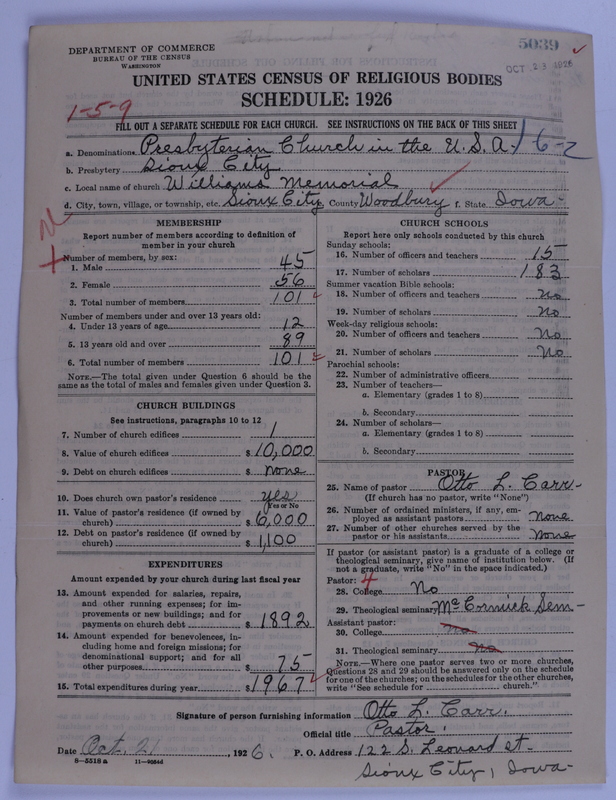 DEPARTMENT OF COMMERCE
BUREAU OF THE CENSUS
WASHINGTON
5039
OCT 23 1926
UNITED STATES CENSUS OF RELIGIOUS BODIES
SCHEDULE: 1926
1-5-9
FILL OUT A SEPARATE SCHEDULE FOR EACH CHURCH. SEE INSTRUCTIONS ON THE BACK OF THIS SHEET
a. Denomination Presbyterian Church in the U.S.A. 16-2
b. Presbytery Sioux City
c. Local name of church Williams Memorial
d. City, town, village, or township, etc. Sioux City County Woodbury f. State Iowa-
MEMBERSHIP
Report number of members according to definition of
member in your church
Number of members, by sex:
1. Male 45
2. Female 56
3. Total number of members 101
Number of members under and over 13 years old:
4. Under 13 years of age 12
5. 13 years old and over 89
6. Total number of members 101
NOTE.—The total given under Question 6 should be the
same as the total of males and females given under Question 3.
CHURCH BUILDINGS
See instructions, paragraphs 10 to 12
7. Number of church edifices 1
8. Value of church edifices $10,000
9. Debt on church edifices $ none
10. Does church own pastor's residence yes
(Yes or No
11. Value of pastor's residence (if owned by
church) $6,000
12. Debt on pastor's residence (if owned by
church) $1,100
EXPENDITURES
Amount expended by your church during last fiscal year
13. Amount expended for salaries, repairs,
and other running expenses; for im-
provements or new buildings; and for
payments on church debt $1892
14. Amount expended for benevolences, in-
cluding home and foreign missions; for
denominational support; and for all
other purposes $ 75
15. Total expenditures during year $1967
CHURCH SCHOOLS
Report here only schools conducted by this church
Sunday schools:
16. Number of officers and teachers 15
17. Number of scholars 183
Summer vacation Bible schools:
18. Number of officers and teachers no
19. Number of scholars no
Week-day religious schools:
20. Number of officers and teachers No
21. Number of scholars No
Parochial schools:
22. Number of administrative officers
23. Number of teachers—
a. Elementary (grades 1 to 8)
b. Secondary
24. Number of scholars—
a. Elementary (grades 1 to 8)
b. Secondary
PASTOR
25. Name of pastor Otto L. Carr-
(If church has no pastor, write "None")
26. Number of ordained ministers, if any, em-
ployed as assistant pastors none
27. Number of other churches served by the
pastor or his assistants none
If pastor (or assistant pastor) is a graduate of a college or
theological seminary, give name of institution below. (If
not a graduate, write "No" in the space indicated.)
Pastor:
28. College No
29. Theological seminary McCormick Sem-
Assistant pastor:
30. College no
31. Theological seminary no
NOTE.—Where one pastor serves two or more churches,
Questions 28 and 29 should be answered only on the schedule
for one of the churches; on the schedules for the other churches,
write "See schedule for church."
Signature of person furnishing information Otto L. Carr.
Official title Pastor.
Date Oct. 21, 1926. P. O. Address 122 S. Leonard st-
8—5518 a
Sioux City, Iowa-